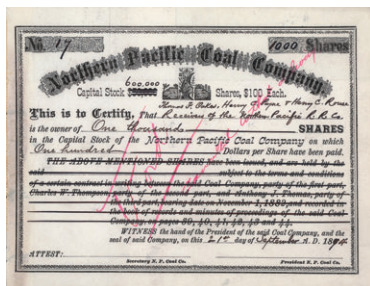 No. 17
1000 Shares
Northern Pacific Coal Company
600,000
Capital Stock Shares, $100 Each.
Thomas F. Oakes, Henry C. Payne & Henry C. Rouse
This is to Certify, That Receivers of the Northern Pacific R.R. Co.
is the owner of One thousand SHARES
in the Capital Stock of the Northern Pacific Coal Company on which
One hundred Dollars per Share have been paid.
THE ABOVE MENTIONED SHARES have been issued, and are held by the
said subject to the terms and conditions
of a certain contract the said Coal Company, party of the first part,
Charles W. Thompson, party of the second part, and Anthony J. Thomas, party of
the third part, bearing date on November 1, 1889, and recorded in
the book of records and minutes of proceedings of the said Coal
Company, at pages 39, 40, 41, 42, 43 and 44.
WITNESS the hand of the President of the said Coal Company, and the
seal of said Company, on this 21st day of September A. D. 1894
ATTEST:
Secretary N. P. Coal Co.
President N. P. Coal Co.